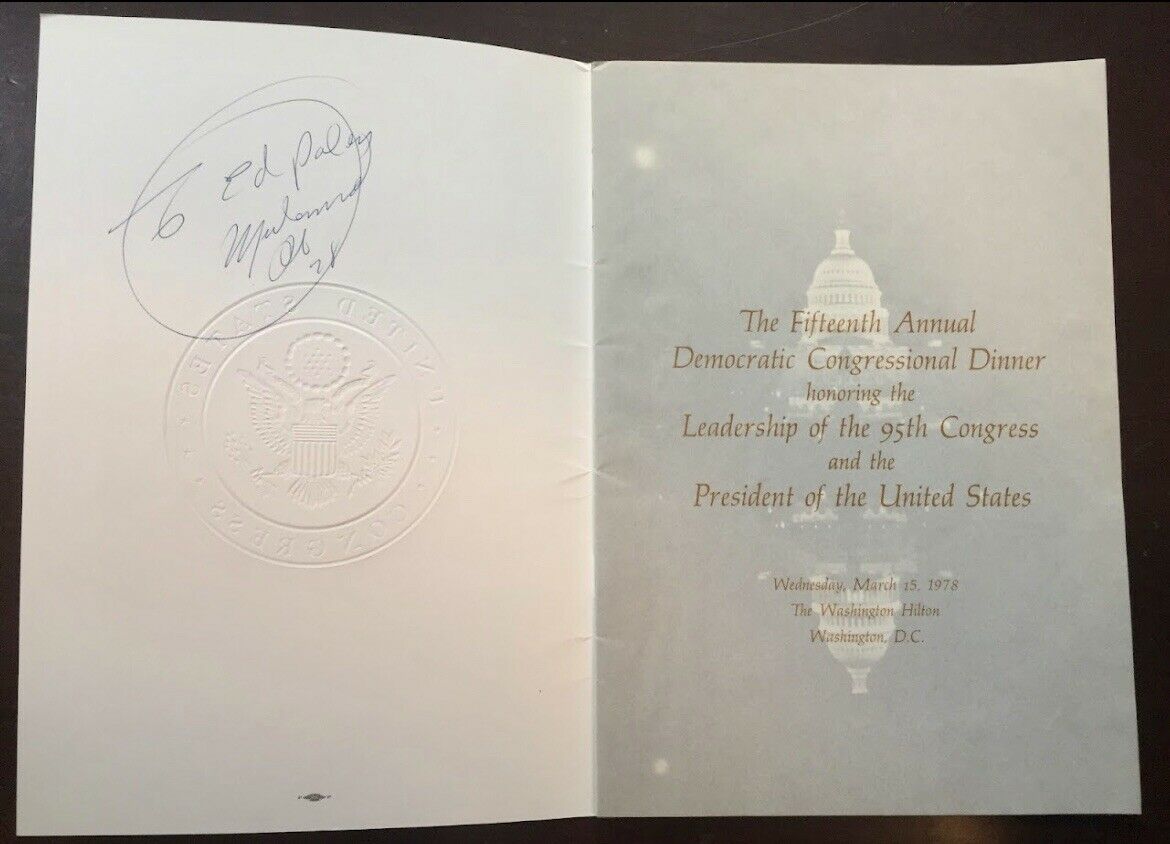 To Ed Paley
Muhammad
Ali
78
UNITED STATES
CONGRESS
The Fifteenth Annual
Democratic Congressional Dinner
honoring the
Leadership of the 95th Congress
and the
President of the United States
Wednesday, March 15, 1978
The Washington Hilton
Washington, D.C.